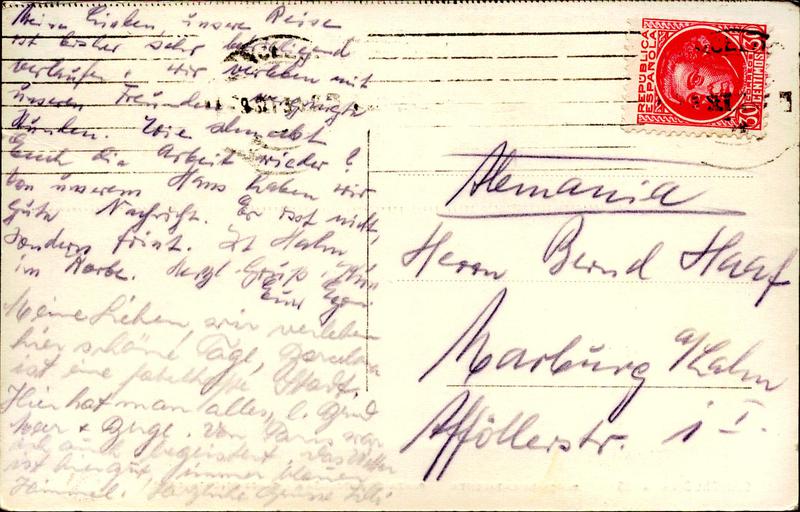 Meine Lieben, unsere Reise
ist bisher sehr
verlaufen, wir verleben mit
unseren Freunden vergnügte
Stunden. Wie schmeckt
Euch die Arbeit wieder?
Von unserem Hans haben wir
gute Nachricht. Er isst nicht,
sondern frisst. Ist Hahn
im Korbe. Herzl. Grüße
Meine Lieben, wir verleben
hier schöne Tage, Barcelona
ist eine fabelhafte Stadt.
Hier hat man alles,
Meer & Berge. Von Paris war
ich auch begeistert. Das Wetter
ist hier gut, immer blauer
Himmel. Herzliche Grüsse
REPUBLICA
ESPAÑOLA
30 CENTIMOS 30
Alemania
Herrn Bernd Haaf
Marburg a/Lahn
Afföllerstr. i I.